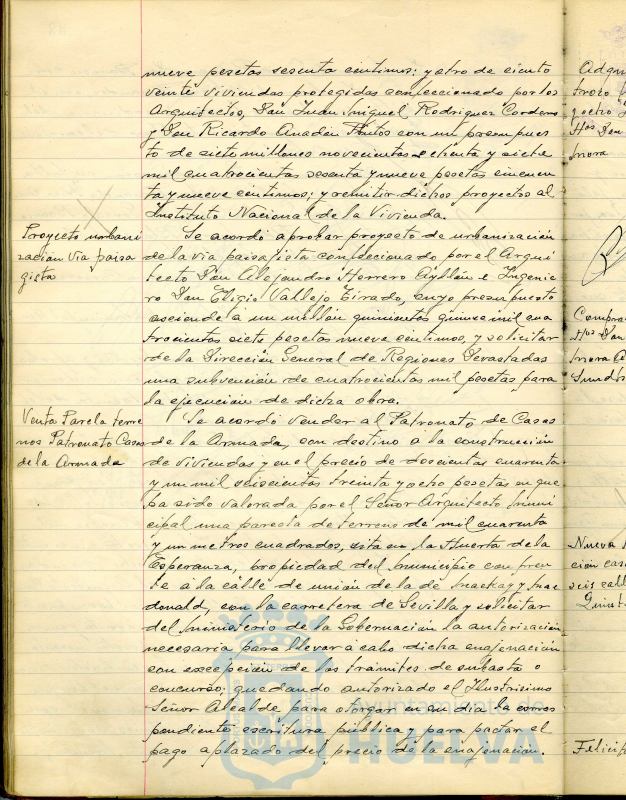 nueve pesetas sesenta centimos: y otro de ciento
veinte viviendas protegidas confeccionado por los
Arquitectos, Don Juan Miguel Rodriguez Cordero
y Don Ricardo Anadón Frutos con un presupues
to de siete millones novecientas ochenta y siete
mil cuatrocientas sesenta y nueve pesetas cincuen
ta y nueve centimos; y remitir dichos proyectos al
Instituto Nacional de la Vivienda.
Proyecto urbani
zación via paisa
gista
Se acordó aprobar proyecto de urbanización
de la via paisajista confeccionado por el Arqui
tecto Don Alejandro Herrero Ayllón e Ingenie
ro Don Eligio Vallejo Tirado, cuyo presupuesto
asciende a un millón quinientas quince mil cua
trocientas siete pesetas nueve centimos, y solicitar
de la Dirección General de Regiones Devastadas
una subvención de cuatrocientas mil pesetas para
la ejecución de dicha obra.
Venta Parcela terre
nos Patronato Casas
de la Armada
Se acordó vender al Patronato de Casas
de la Armada, con destino a la construcción
de viviendas y en el precio de doscientas cuarenta
y un mil seiscientas treinta y ocho pesetas en que
ha sido valorada por el Señor Arquitecto Muni
cipal una parcela de terreno de mil cuarenta
y un metros cuadrados, sita en la Huerta de la
Esperanza, propiedad del Municipio con fren
te a la calle de unión de la de Mackay y Mac
donald, con la carretera de Sevilla y solicitar
del Ministerio de la Gobernación la autorización
necesaria para llevar a cabo dicha enajenación
con excepción de los trámites de subasta o
concurso; quedando autorizado el Ilustrisimo
Señor Alcalde para otorgar en su dia la corres
pondiente escritura pública y para pactar el
pago aplazado del precio de la enajenación.
Ayuntamiento de
HUELVA
trozo
y ocho
Hos Don
mora
Compra
Hos Don
mora
Nueva
ción cas
seis call
Quint
Felici